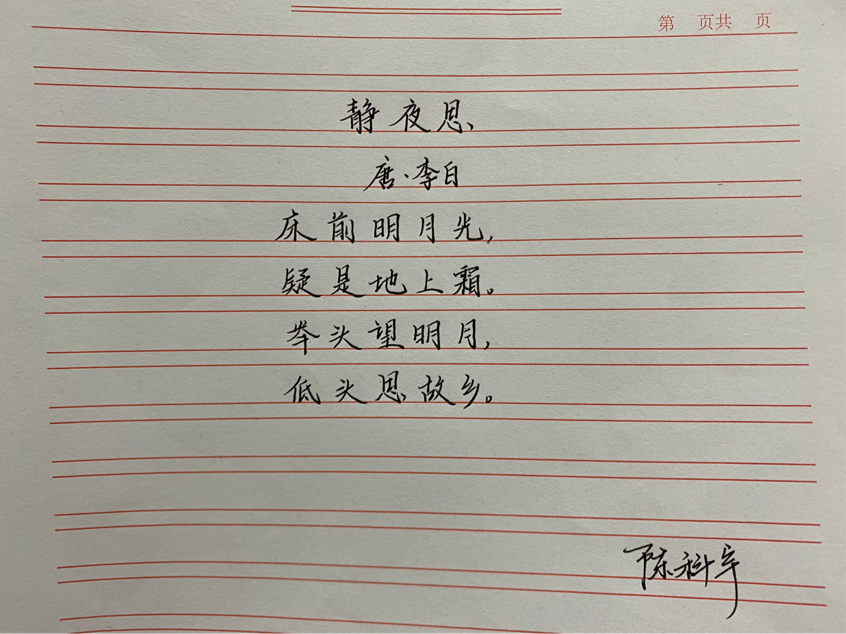 第 页共 页
静夜思
唐·李白
床前明月光，
疑是地上霜。
举头望明月，
低头思故乡。
陈科宇